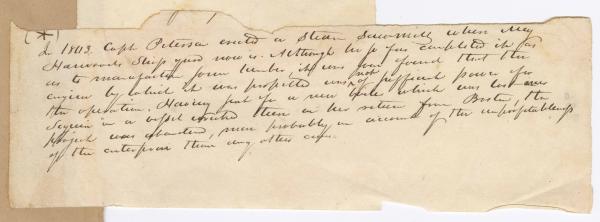 (*)
In 1803. Capt Peterson erected a Steam Saw-mill where Mr
Harwards Ship yard now is. Although he so far completed it
as to manufacture some lumber, it was soon found that the
engine by which it was propelled was not of sufficient power for
the operation. Having put for a new one which was lost near
Seguin in a vessel on her return from Boston, the
project was abandoned, more probably on account of the unprofitableness
of the enterprise than any other cause.